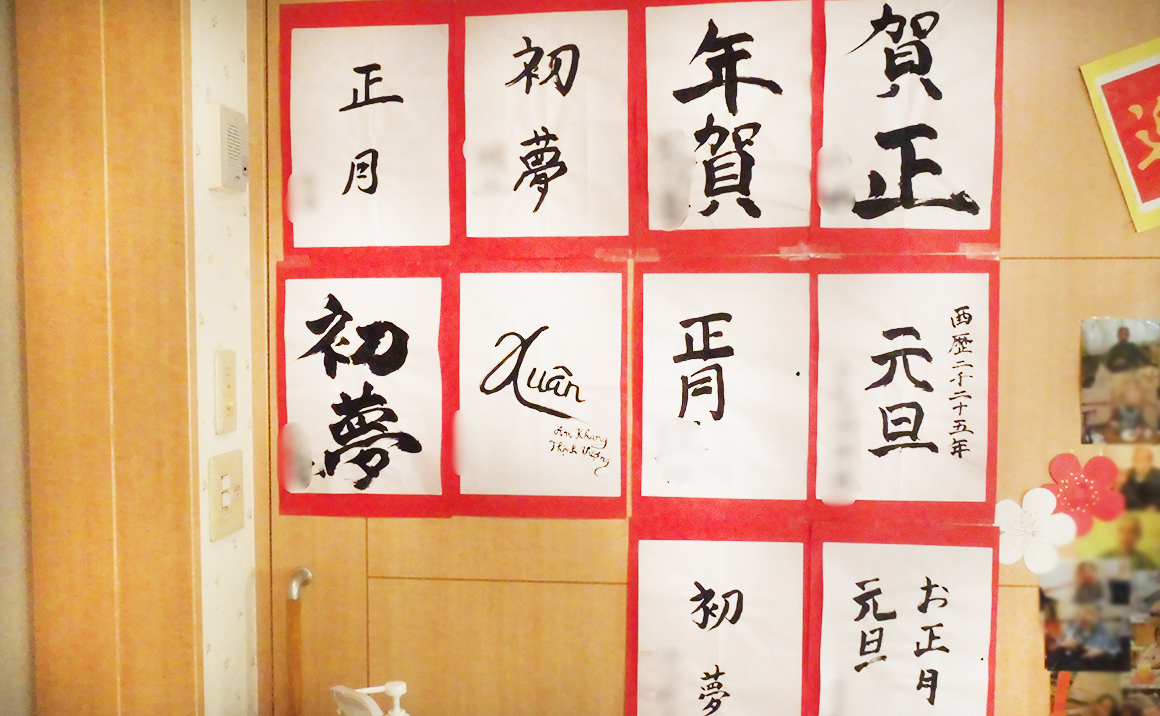 正月
初夢
年賀
賀正
初夢
Xuân
An Khang
Thịnh Vượng
正月
西歴二千二十五年
元旦
初夢
お正月
元旦